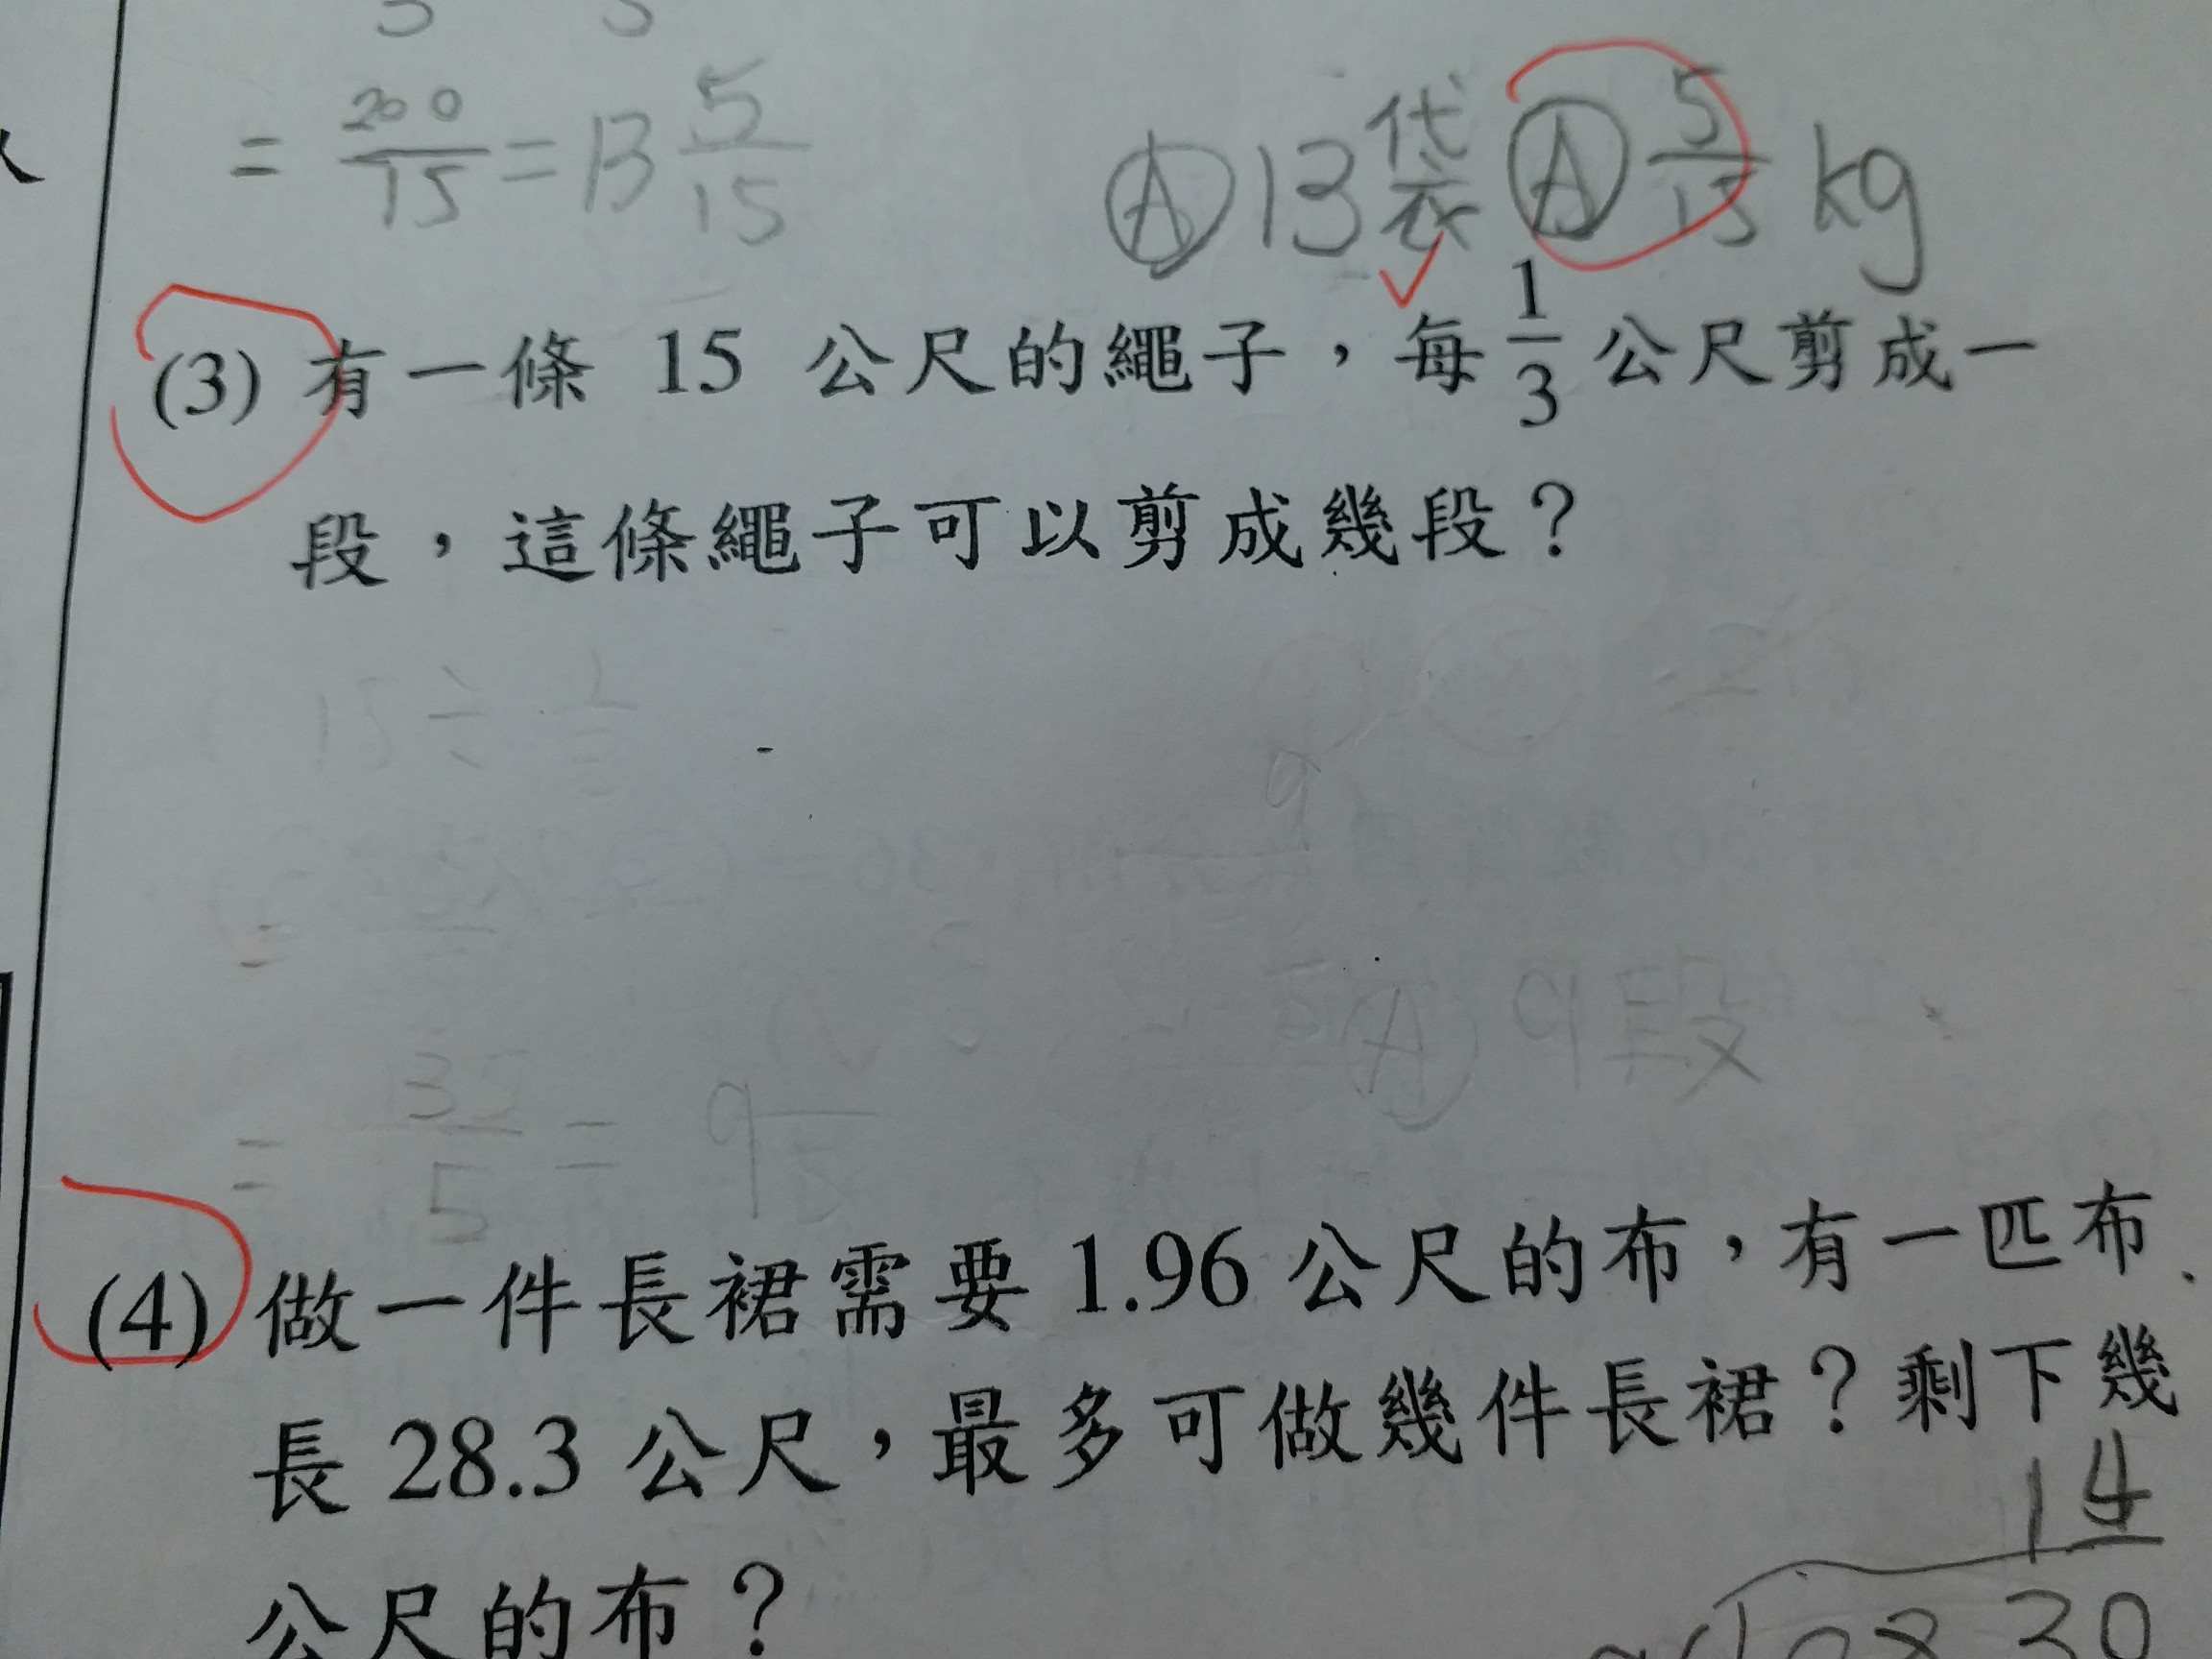 = 200/15 = 13 5/15
Ⓐ 13袋 Ⓐ 5/15 kg
(3) 有一條 15 公尺的繩子，每 1/3 公尺剪成一
段，這條繩子可以剪成幾段？
15 ÷
Ⓐ 9段
(4) 做一件長裙需要 1.96 公尺的布，有一匹布
長 28.3 公尺，最多可做幾件長裙？剩下幾
14
公尺的布？